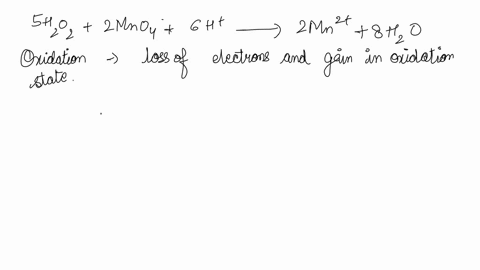 5H₂O₂ + 2MnO₄⁻ + 6H⁺ ⟶ 2Mn²⁺ + 8H₂O
Oxidation → loss of electrons and gain in oxidation
state.